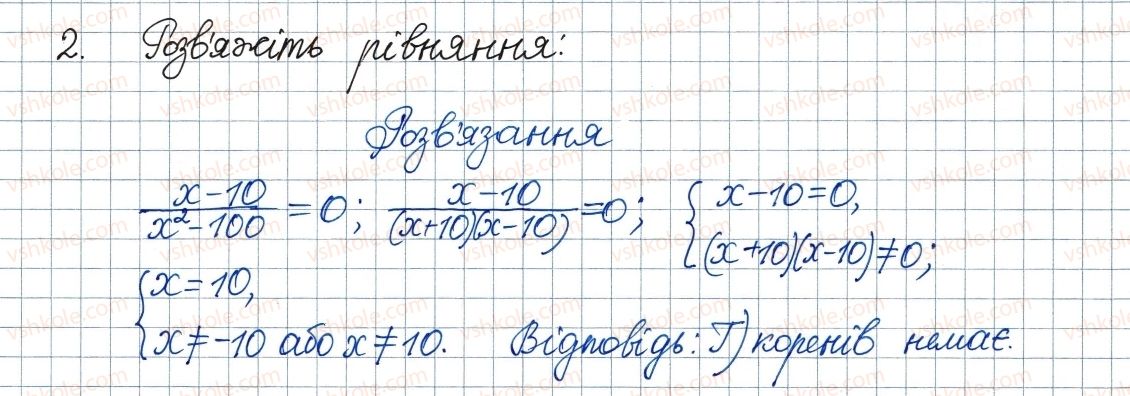 2. Розв'яжіть рівняння:
Розв'язання
x-10/x²-100 = 0; x-10/(x+10)(x-10) = 0; { x-10=0, (x+10)(x-10)≠0;
{ x=10,
x≠-10 або x≠10. Відповідь: Г) коренів немає.